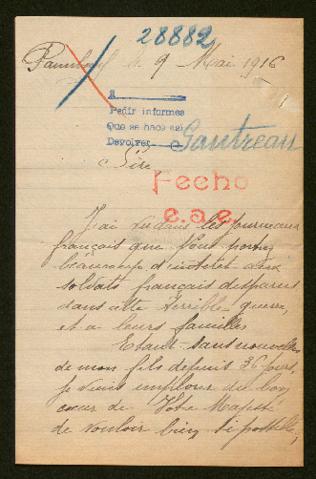 28882
le 9 Mai 1916
A
Pedir informes
Que se hace así
Devolver
Gautreau
Sire
Fecho
e.a.e.
J'ai vu dans les journeaux
français que Vous portez
beaucoup d'interet aux
soldats français disparus
dans cette terrible guerre,
et a leurs familles
Etant sans nouvelles
de mon fils depuis 36 jours,
je viens implorer du bon
cœur de Votre Majesté
de vouloir bien, si possible,